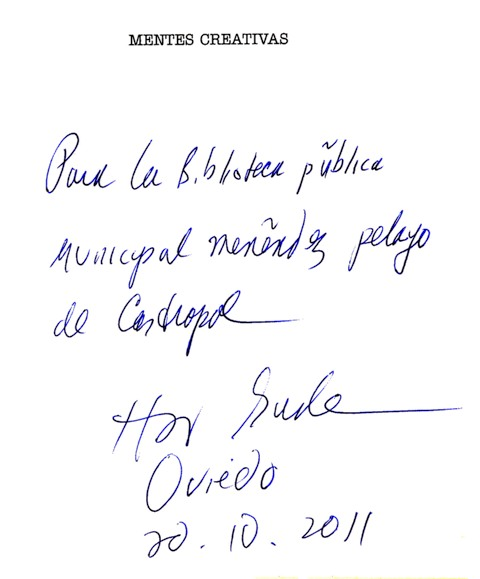 MENTES CREATIVAS
Para la Biblioteca pública
Municipal menéndez pelayo
de Castropol
Oviedo
20.10.2011